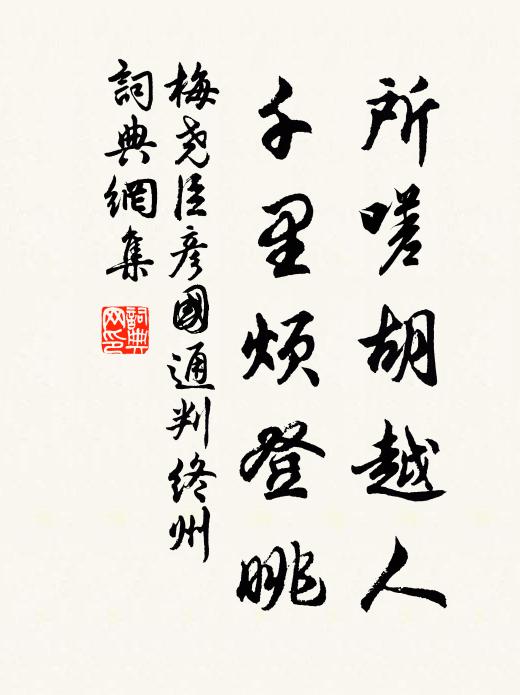 所嗟胡越人
千里烦登眺
梅尧臣彦國通判终州
詞典網集
詞典网印